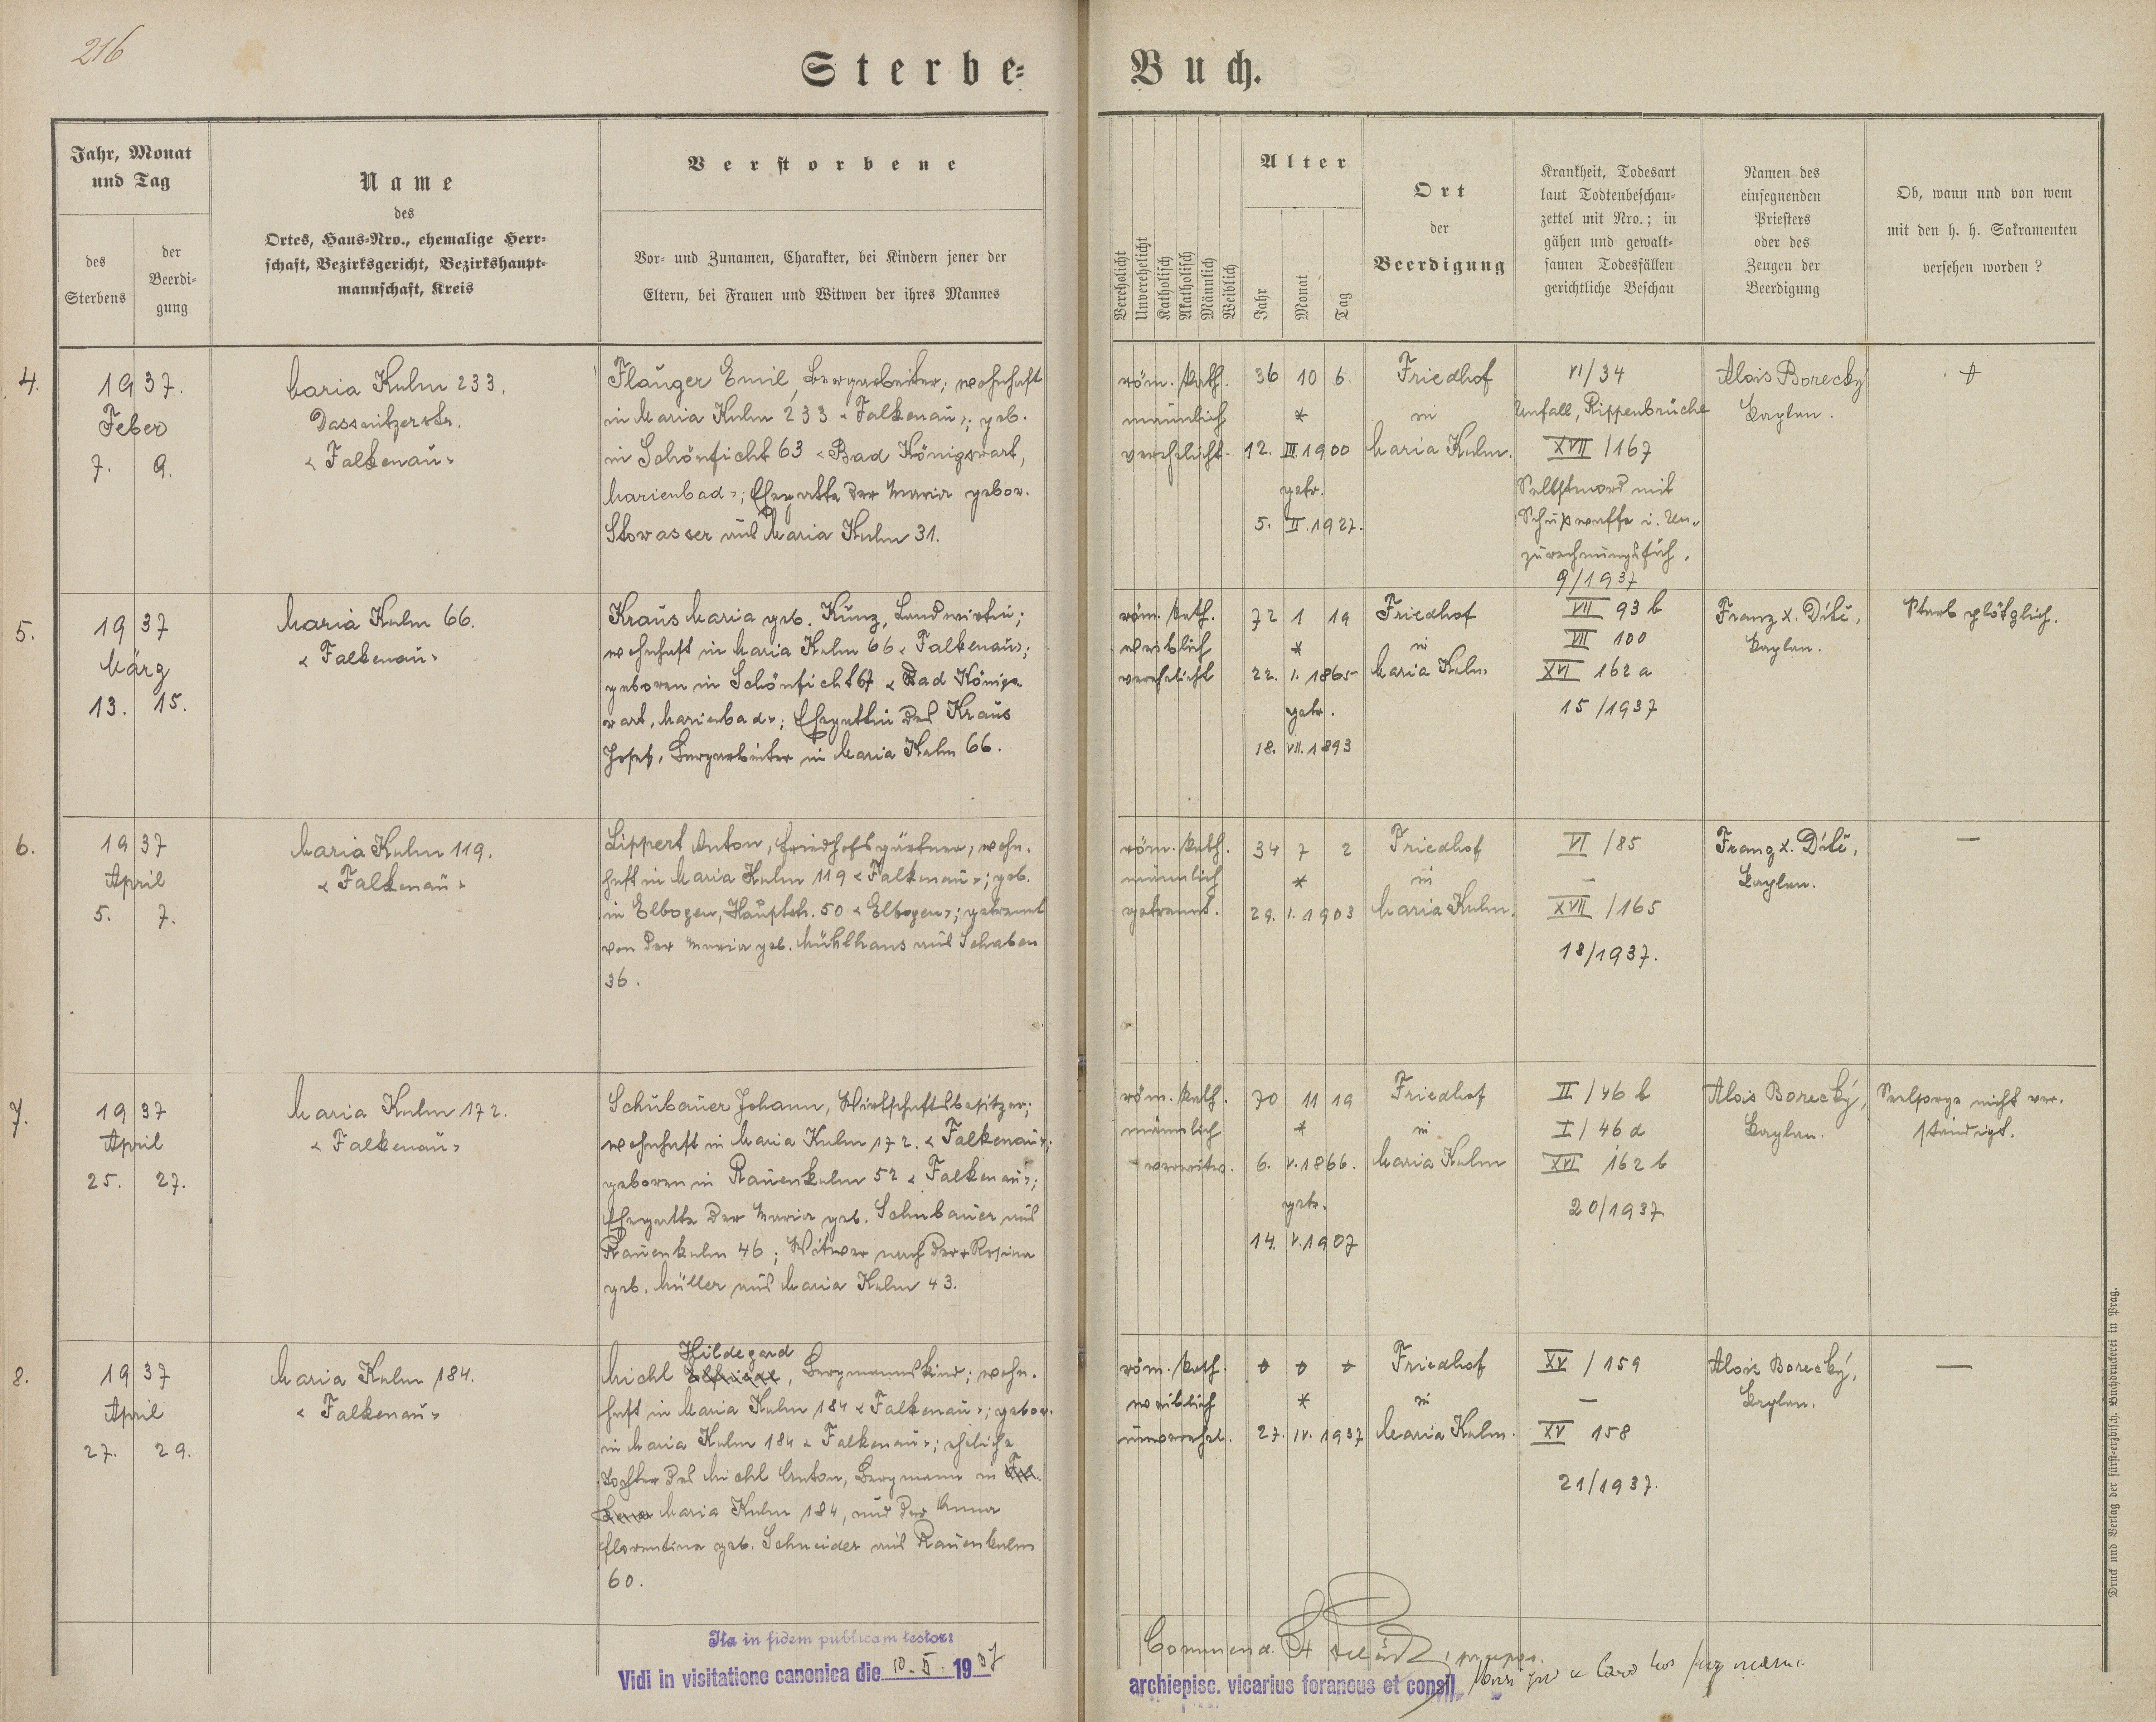 216
Sterbe-
Buch.
Jahr, Monat
und Tag
des
Sterbens
der
Beerdi-
gung
Name
des
Ortes, Haus-Nro., ehemalige Herr-
schaft, Bezirksgericht, Bezirkshaupt-
mannschaft, Kreis
Verstorbene
Vor- und Zunamen, Charakter, bei Kindern jener der
Eltern, bei Frauen und Witwen der ihres Mannes
Verehelicht
Unverehelicht
Katholisch
Akatholisch
Männlich
Weiblich
Alter
Jahr
Monat
Tag
Ort
der
Beerdigung
Krankheit, Todesart
laut Todtenbeschau-
zettel mit Nro.; in
gähen und gewalt-
samen Todesfällen
gerichtliche Beschau
Namen des
einsegnenden
Priesters
oder des
Zeugen der
Beerdigung
Ob, wann und von wem
mit den h. h. Sakramenten
versehen worden?
4.
1937.
Feber
7. 9.
Maria Kulm 233.
Dassnitzerstr.
« Falkenau »
Flauger Emil, Bergarbeiter, wohnhaft
in Maria Kulm 233 « Falkenau »; geb.
in Schönficht 63 « Bad Königswart,
Marienbad »; Ehegatte der Maria gebor.
Stowasser aus Maria Kulm 31.
röm. kath.
männlich
verehelicht.
36 10 6.
*
12. III. 1900
getr.
5. II. 1927.
Friedhof
in
Maria Kulm.
VI/34
Unfall, Rippenbrüche
XVII/167
Selbstmord mit
Schußwaffe i. Un-
zurechnungsfäh.
9/1937
Alois Borecký
Kaplan.
5.
1937
März
13. 15.
Maria Kulm 66.
« Falkenau »
Kraus Maria geb. Kunz, Landwirtin;
wohnhaft in Maria Kulm 66 « Falkenau »;
geboren in Schönficht 67 « Bad Königs-
wart, Marienbad »; Ehegattin des Kraus
Josef, Bergarbeiter in Maria Kulm 66.
röm. kath.
weiblich
verehelicht
72 1 19
*
22. I. 1865
getr.
18. VII. 1893
Friedhof
in
Maria Kulm
VII 93 b
VII 100
XVI 162 a
15/1937
Franz X. Dítě,
Kaplan.
Starb plötzlich.
6.
1937
April
5. 7.
Maria Kulm 119.
« Falkenau »
Lippert Anton, Friedhofsgärtner, wohn-
haft in Maria Kulm 119 « Falkenau »; geb.
in Elbogen, Hauptstr. 50 « Elbogen »; getrennt
von der Maria geb. Mühlhans aus Schaben
36.
röm. kath.
männlich
getrennt.
34 7 2
*
29. I. 1903
Friedhof
in
Maria Kulm.
VI/85
–
XVII/165
18/1937.
Franz X. Dítě,
Kaplan.
—
7.
1937
April
25. 27.
Maria Kulm 172.
« Falkenau »
Schubauer Johann, Wirtschaftsbesitzer;
wohnhaft in Maria Kulm 172. « Falkenau »;
geboren in Rauenkulm 52 « Falkenau »;
Ehegatte der Maria geb. Schubauer aus
Rauenkulm 46; Witwer nach der + Rosina
geb. Müller aus Maria Kulm 43.
röm. kath.
männlich
verwitw.
70 11 19
*
6. V. 1866.
getr.
14. V. 1907
Friedhof
in
Maria Kulm
II/46 b
I/46 d
XVI 162 b
20/1937
Alois Borecký,
Kaplan.
Seelsorge nicht ver-
ständigt.
8.
1937
April
27. 29.
Maria Kulm 184.
« Falkenau »
Hildegard
Michl Elfriede, Bergmannskind; wohn-
haft in Maria Kulm 184 « Falkenau »; gebor.
in Maria Kulm 184 « Falkenau »; eheliche
Tochter des Michl Anton, Bergmann in
Maria Kulm 184, und der Anna
Florentina geb. Schneider aus Rauenkulm
60.
röm. kath.
weiblich
unverehel.
*
27. IV. 1937
Friedhof
in
Maria Kulm.
XV/159
–
XV 158
21/1937.
Alois Borecký,
Kaplan.
—
Ita in fidem publicam testor:
Vidi in visitatione canonica die 10. X. 1937
Commend.
archiepisc. vicarius foraneus et consil
Druck und Verlag der fürst-erzbisch. Buchdruckerei in Prag.